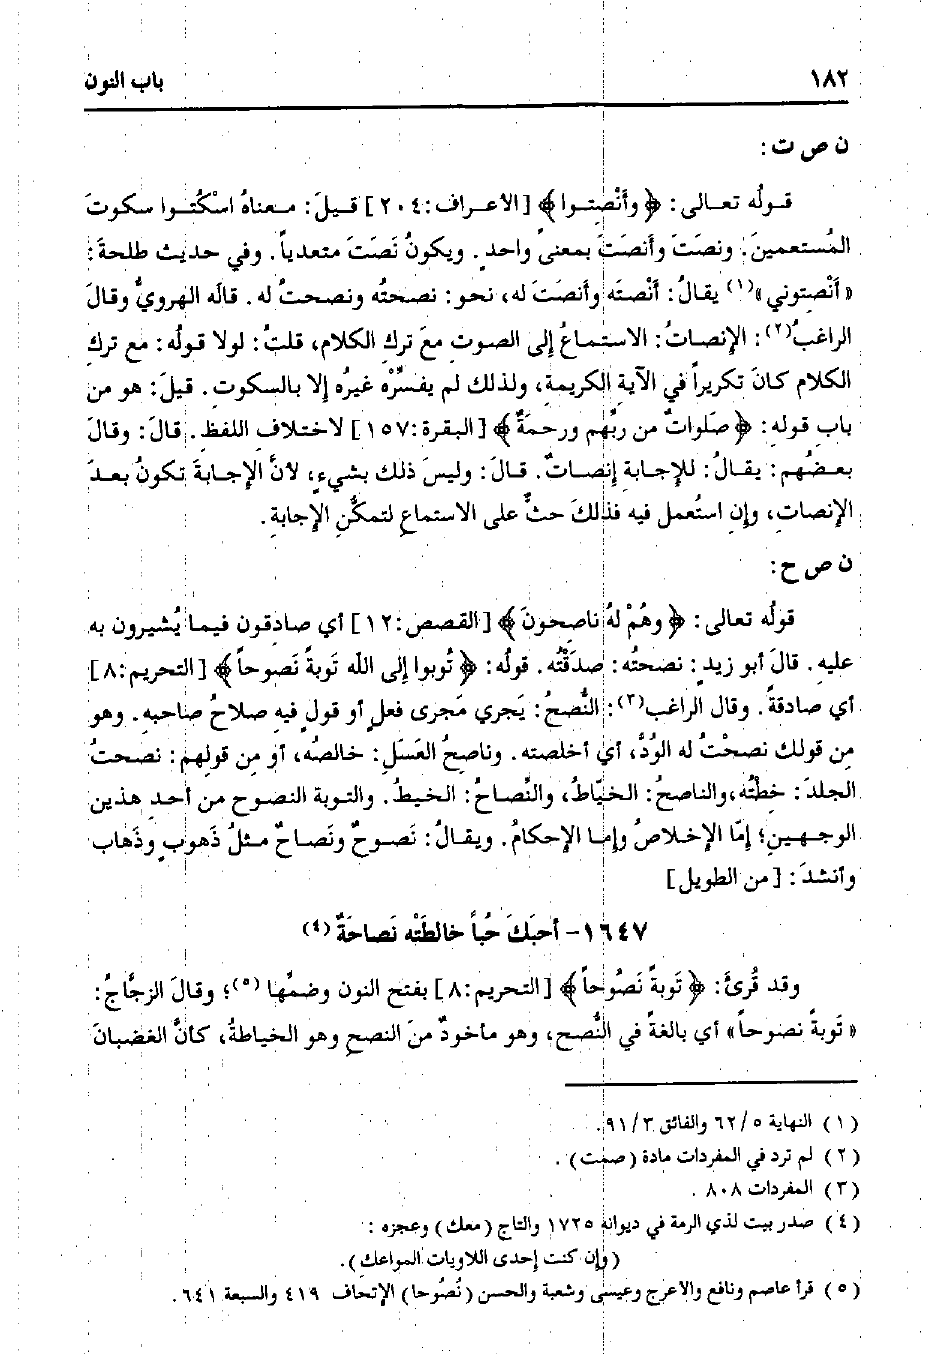 ١٨٢
باب النون
ن ص ت:
قولُه تعالى: ﴿ وأَنْصِتوا ﴾ [الأعراف:٢٠٤] قيلَ: معناهُ اسْكُتُوا سكوتَ
المُستعمينَ. ونصَتَ وأَنصَتَ بمعنىً واحدٍ. ويكونُ نَصَتَ متعدياً. وفي حديث طلحةَ:
«أَنْصِتوني»(١) يقالُ: أَنْصتَه وأَنصَتَ له، نحو: نصحتُه ونصحتُ له. قالَه الهرويُّ وقالَ
الراغبُ(٢): الإنصاتُ: الاستماعُ إلى الصوتِ معَ تركِ الكلامِ، قلتُ: لولا قولُه: مع تركِ
الكلام كانَ تكريراً في الآية الكريمة، ولذلك لم يفسِّرْه غيرُه إلا بالسكوت. قيلَ: هو من
بابِ قولِه: ﴿ صَلَواتٌ من ربِّهم ورحمةٌ ﴾ [البقرة:١٥٧] لاختلافِ اللفظ. قالَ: وقالَ
بعضُهم: يقالُ: للإجابة إِنصاتٌ. قالَ: وليسَ ذلك بشيءٍ، لأنَّ الإجابةَ تكونُ بعدَ
الإنصات، وإن استُعمل فيه فذلكَ حثٌّ على الاستماعِ لتمكُّنِ الإجابةِ.
ن ص ح:
قولُه تعالى: ﴿ وهُمْ لهُ ناصِحونَ ﴾ [القصص:١٢] أي صادقون فيما يُشيرون به
عليه. قالَ أبو زيدٍ: نصحتُه: صدَقْتُه. قولُه: ﴿ تُوبوا إلى الله تَوبةً نَصوحاً ﴾ [التحريم:٨]
أي صادقةً. وقال الراغب(٣): النُّصحُ: يَجري مَجرى فعلٍ أو قولٍ فيه صلاحُ صاحبهِ. وهو
من قولك نصحْتُ له الوُدَّ، أي أخلصته. وناصحُ العَسَلِ: خالصُه، أو مِن قولهِم: نصحتُ
الجلدَ: خطْتُه،والناصحُ: الخيّاطُ، والنِّصاحُ: الخيطُ. والتوبة النصوح من أحدِ هذين
الوجهينِ؛ إمّا الإخلاصُ وإما الإحكامُ. ويقالُ: نَصوحٌ ونَصاحٌ مثلُ ذَهوبٍ وذَهاب
وأنشدَ: [من الطويل]
١٦٤٧- أحبَكَ حُباً خالطَتْه نَصاحَةٌ(٤)
وقد قُرئَ: ﴿ تَوبةً نَصُوحاً ﴾ [التحريم:٨] بفتح النون وضمِّها(٥)؛ وقالَ الزجَّاجُ:
«تَوبةً نصوحاً» أي بالغةً في النُّصح، وهو مأخوذٌ منَ النصحِ وهو الخياطةُ، كأنَّ الغضبانَ
(١) النهاية ٥/ ٦٢ والفائق ٣/ ٩١.
(٢) لم ترد في المفردات مادة (صمت).
(٣) المفردات ٨٠٨.
(٤) صدر بيت لذي الرمة في ديوانه ١٧٢٥ والتاج (معك) وعجزه:
(وإن كنت إحدى اللاويات المواعك).
(٥) قرأ عاصم ونافع والأعرج وعيسى وشعبة والحسن (نُصُوحا) الإتحاف ٤١٩ والسبعة ٦٤١.